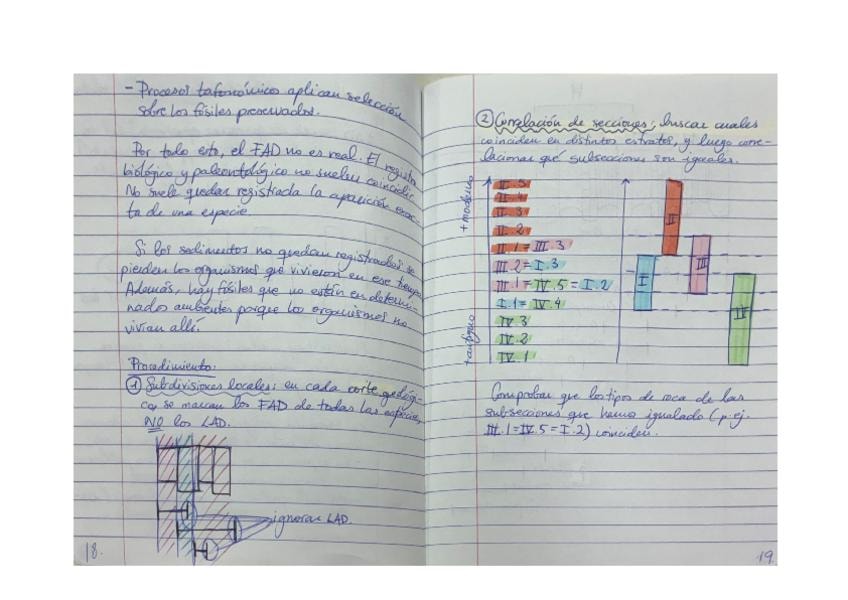 - Procesos tafonómicos aplican selección
sobre los fósiles preservados.
Por todo esto, el FAD no es real. El registro
biológico y paleontológico no suelen coincidir.
No suele quedar registrada la aparición exac-
ta de una especie.
Si los sedimentos no quedan registrados se
pierden los organismos que vivieron en ese tiempo.
Además, hay fósiles que no están en determi-
nados ambientes porque los organismos no
vivían allí.
Procedimiento:
① Subdivisiones locales: en cada corte geológi-
co, se marcan los FAD de todas las especies,
NO los LAD.
ignorar LAD.
18.
② Correlación de secciones: buscar cuales
coinciden en distintos estratos, y luego corre-
lacionar qué subsecciones son iguales.
+ moderno
II.5
II.4
II.3
II.2
II.1 = III.3
III.2 = I.3
III.1 = IV.5 = I.2
I.1 = IV.4
IV.3
IV.2
IV.1
+ antiguo
II
III
I
IV
Comprobar que los tipos de roca de las
subsecciones que hemos igualado (p.ej.
III.1 = IV.5 = I.2) coinciden.
19